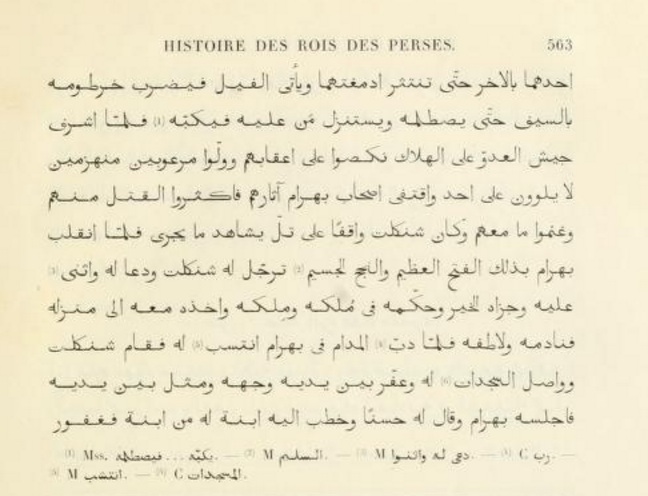 HISTOIRE DES ROIS DES PERSES. 563
احدهما بالاخر حتّى تنتثر ادمغتهما ويأتى الفيل فيضرب خرطومه
بالسيف حتّى يصطلمه ويستنزل مَن عليه فيكبّه (1) فلمّا اشرف
جيش العدوّ على الهلاك نكصوا على اعقابهم وولّوا مرعوبين منهزمين
لا يلوون على احد واقتفى اصحاب بهرام آثارهم فاكثروا القتل منهم
وغنموا ما معهم وكان شنكلت واقفًا على تلّ يشاهد ما يجرى فلمّا انقلب
بهرام بذلك الفتح العظيم والنجح الجسيم (2) ترجّل له شنكلت ودعا له واثنى (3)
عليه وجزاه الخير وحكّمه فى مُلكه ومِلكه واخذه معه الى منزله
فنادمه ولاطفه فلمّا دبّ (4) المدام فى بهرام انتسب (5) له فقام شنكلت
وواصل السجدات (6) له وعفّر بين يديه وجهه ومثل بين يديه
فاجلسه بهرام وقال له حسنًا وخطب اليه ابنة له من ابنة فغفور
(1) Mss. يكبّه ... فيصطلمه. — (2) M السليم. — (3) M دعى له واثنوا. — (4) C رب. —
(5) M انتشب. — (6) C المسجدات.